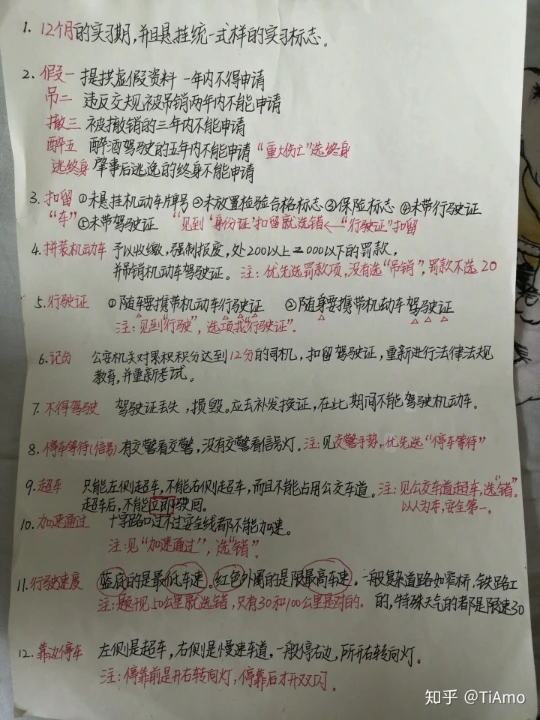 1. 12个月的实习期,并且悬挂统一式样的实习标志。
2. 假一 提供虚假资料 一年内不得申请
吊二 违反交规被吊销两年内不能申请
撤三 被撤销的三年内不能申请
醉五 醉酒驾驶的五年内不能申请 "重大伤亡"选终身
逃终身 肇事后逃逸的终身不能申请
3. 扣留 ①未悬挂机动车牌号 ②未放置检验合格标志 ③保险标志 ④未带行驶证
"车" ⑤未带驾驶证 "见到"身份证"扣留就选错 ← "行驶证"扣留
4. 拼装机动车 予以收缴,强制报废,处200以上2000以下的罚款,
并吊销机动车驾驶证。 注:优先选罚款项,没有选"吊销",罚款不选20
5. 行驶证 ①随身要携带机动车行驶证 ②随身要携带机动车驾驶证
注:见到"行驶",选项找"行驶证".
6. 记分 公安机关对累积积分达到12分的司机,扣留驾驶证,重新进行法律法规
教育,并重新考试。
7. 不得驾驶 驾驶证丢失,损毁。应去补发换证,在此期间不能驾驶机动车.
8. 停车等待(信号) 有交警看交警,没有交警看信号灯. 注:见交警手势,优先选"停车等待"
9. 超车 只能左侧超车,不能右侧超车,而且不能占用公交车道. 注:见公交车道超车,选"错".
超车后,不能立即驶回. 以人为本,安全第一.
10. 加速通过 十字路口过不过安全线都不能加速.
注:见"加速通过",选"错".
11. 行驶速度 蓝底的是最低车速,红色外圈的是限最高车速.一般复杂道路如窄桥,铁路工
注:题干现50公里就选错,只有30和100公里是对的. 的,特殊天气的都是限速30
12. 靠边停车 左侧是超车,右侧是慢速车道,一般停右边,所开右转向灯.
注:停靠前是开右转向灯,停靠后才开双闪.
知乎 @TiAmo